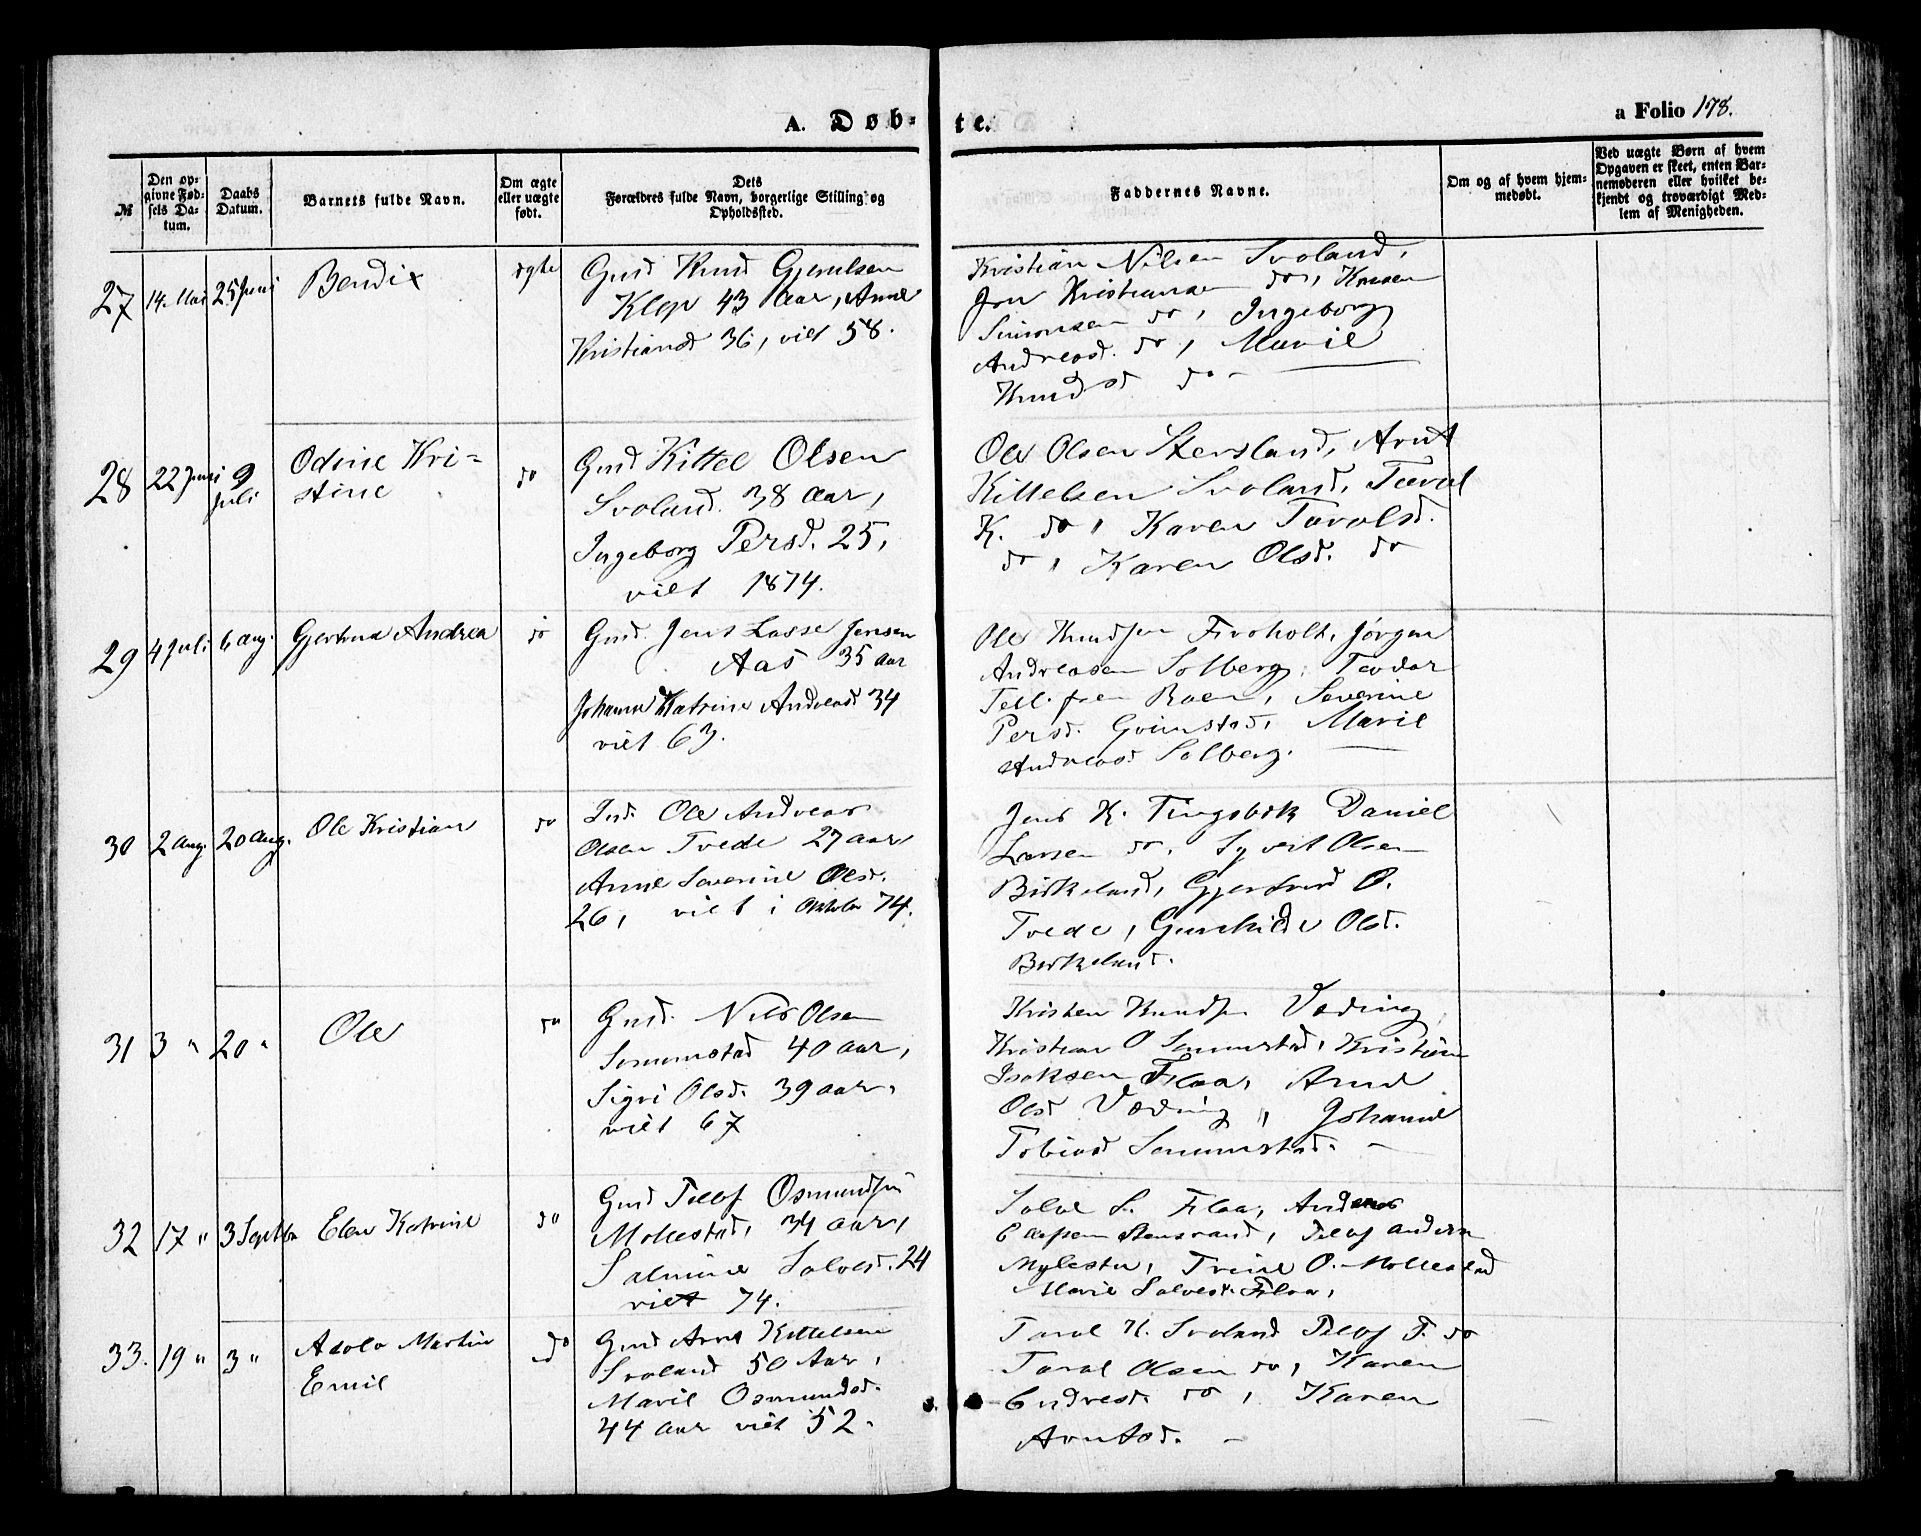 A. Døb-
te.
a Folio 178.
№
Den op-
givne Fød-
sels Da-
tum.
Daabs
Datum.
Barnets fulde Navn.
Om ægte
eller uægte
født.
Dets
Forældres fulde Navn, borgerlige Stilling og
Opholdssted.
Faddernes Navne.
Om og af hvem hjem-
medøbt.
Ved uægte Børn af hvem
Opgaven er skeet, enten Bar-
nemoderen eller hvilket be-
kjendt og troværdigt Med-
lem af Menigheden.
27
14. Mai
25 Juni
Bendix
ægte
Gmd Knud Gjerulsen
Klep 43 Aar, Anne
Kristiansd 36, viet 58.
Kristian Nilsen Svoland,
Jon Kristiansen do,
Simonsen do, Ingeborg
Andreasd. do, Marie
Knudsd do -
28
22 Juni
9
Juli
Odine Kri-
stine
do
Gmd Kittel Olsen
Svoland. 38 Aar,
Ingeborg Persd. 25,
viet 1874.
Ole Olsen Stersland, Arnt
Kittelsen Svoland, Taral
K. do, Karen Taralsd.
do, Karen Olsd. do
29
4 Juli
6 Aug.
Gjertrud Andrea
do
Gmd. Jens Lasse Jensen
Aas 35 Aar
Johanne Katrine Andreasd 34
viet 63.
Ole Knudsen Fivoholt, Jørgen
Andreasen Solberg, Teodor
Tellefsen Roen, Severine
Persd. Grimstad, Marie
Andreasd Solberg.
30
2 Aug.
20 Aug.
Ole Kristian
do
Ind. Ole Andreas
Olsen Tvede 27 Aar
Anne Severine Olsd.
26, viet i Oktober 74.
Jens K. Tingsbøk Daniel
Larsen do, Syvert Olsen
Birkeland, Gjertrud O.
Tvede, Gunhilde Olsd.
Birkeland.
31
3 "
20 "
Ole
do
Gmd. Nils Olsen
Sennumstad 40 Aar,
Sigri Olsd. 39 Aar,
viet 67
Kristen Knudsen Væding,
Kristian O Sennumstad, Kristian
Isaksen Flaa, Anne
Olsd Væding, Johanne
Tobiasd Sennumstad. -
32
17 "
3 Septbr
Elen Katrine
do
Gmd Tellef Osmundsen
Mollestad, 34 Aar,
Salmine Salvesd. 24
viet 74.
Salve S. Flaa, Anders
Stensrand, Tellef Andersen
Mylestu, Trine O. Mollestad
Marie Salvesd. Flaa,
33.
19 "
3 "
Adolv Martin
Emil
do
Gmd Arnt Kittelsen
Svoland 50 Aar,
Marie Osmundsd.
44 Aar viet 52.
Taral K. Svoland Tellef T. do
Taral Olsen do, Karen
Endresd. do, Karen
Arntsd. -